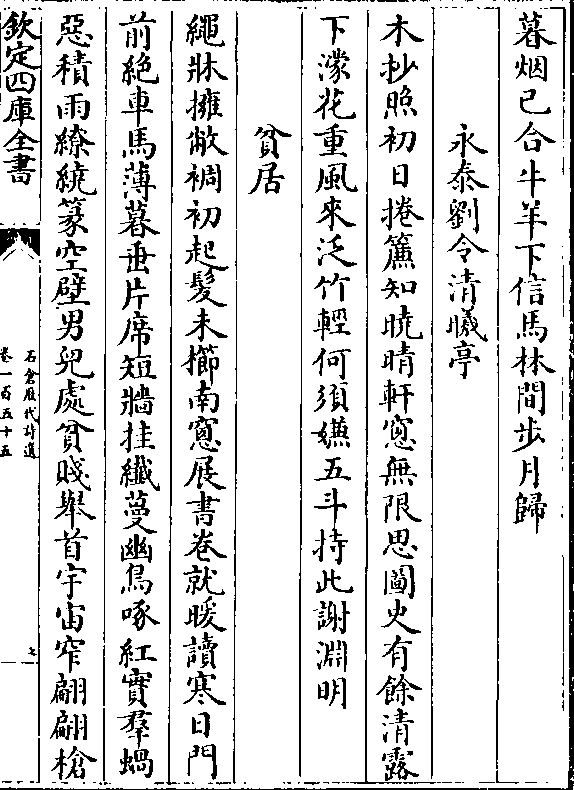 暮烟已合牛羊下信馬林間步月歸
永泰劉令清曦亭
木抄照初日捲簾知曉晴軒窓無限思圖史有餘清露
下濛花重風來泛竹輕何須嫌五斗持此謝淵明
貧居
繩牀擁敝裯初起髮未櫛南窓展書卷就暖讀寒日門
前絶車馬薄暮垂片席短牆挂纖蔓幽鳥啄紅實羣蝸
惡積雨繚繞篆空壁男兒處貧賤舉首宇宙窄翩翩槍
欽定四庫全書
石倉歷代詩選
卷一百五十五
七